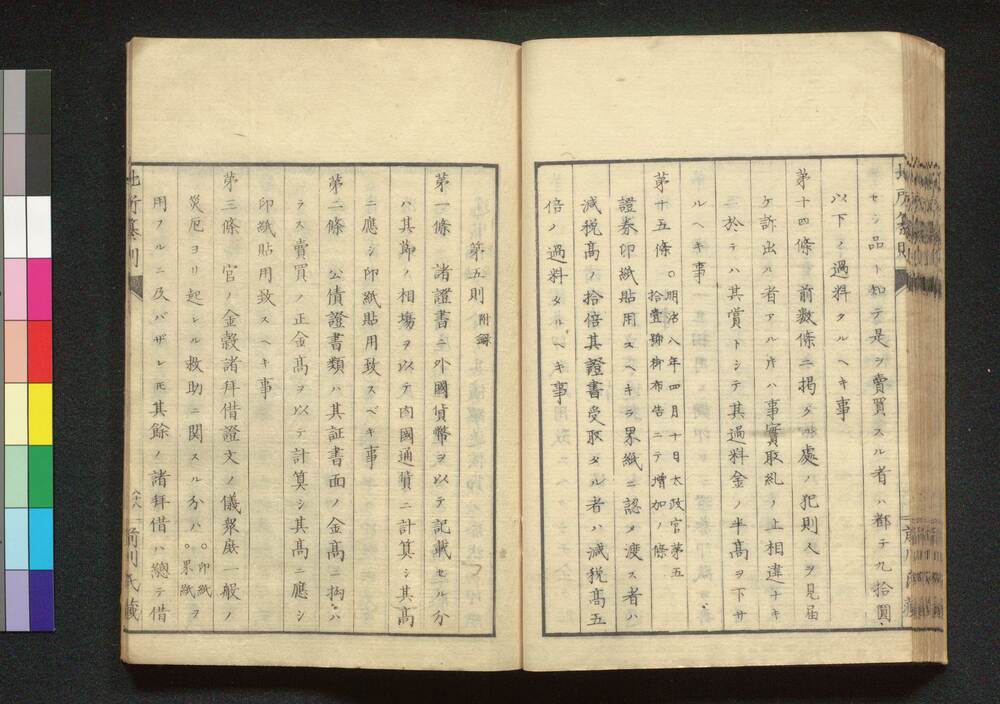 セシ品ト知テ是ヲ賣買スル者ハ都テ九拾圓
以下ノ過料タルヘキ事
第十四條 前數條ニ掲ケタル處ノ犯則人ヲ見届
ケ訴出ル者アル片ハ事實取糺ノ上相違ナキニ
於テハ其賞トシテ其過料金ノ半高ヲ下サ
ルヘキ事
第十五條 ○明治八年四月十日太政官第五
拾壹號御布告ニテ增加ノ條
證券印紙貼用スヘキヲ界紙ニ認メ渡ス者ハ
減税高ノ拾倍其證書受取タル者ハ減税高五
倍ノ過料タルヘキ事
第五則 附録
第一條 諸證書ニ外國貨幣ヲ以テ記載セル分
ハ其節ノ相場ヲ以テ内國通貨ニ計算シ其高
ニ應シ印紙貼用致スベキ事
第二條 公債證書類ハ其証書面ノ金高ニ拘ハ
ラス賣買ノ正金高ヲ以テ計算シ其高ニ應シ
印紙貼用致スヘキ事
第三條 官ノ金穀諸拜借證文ノ儀衆庶一般ノ
災厄ヨリ起レル救助ニ関スル分ハ ○印紙○界紙ヲ
用フルニ及バザレ圧其餘ノ諸拜借ハ總テ借
地所纂則
六十八
前川氏藏